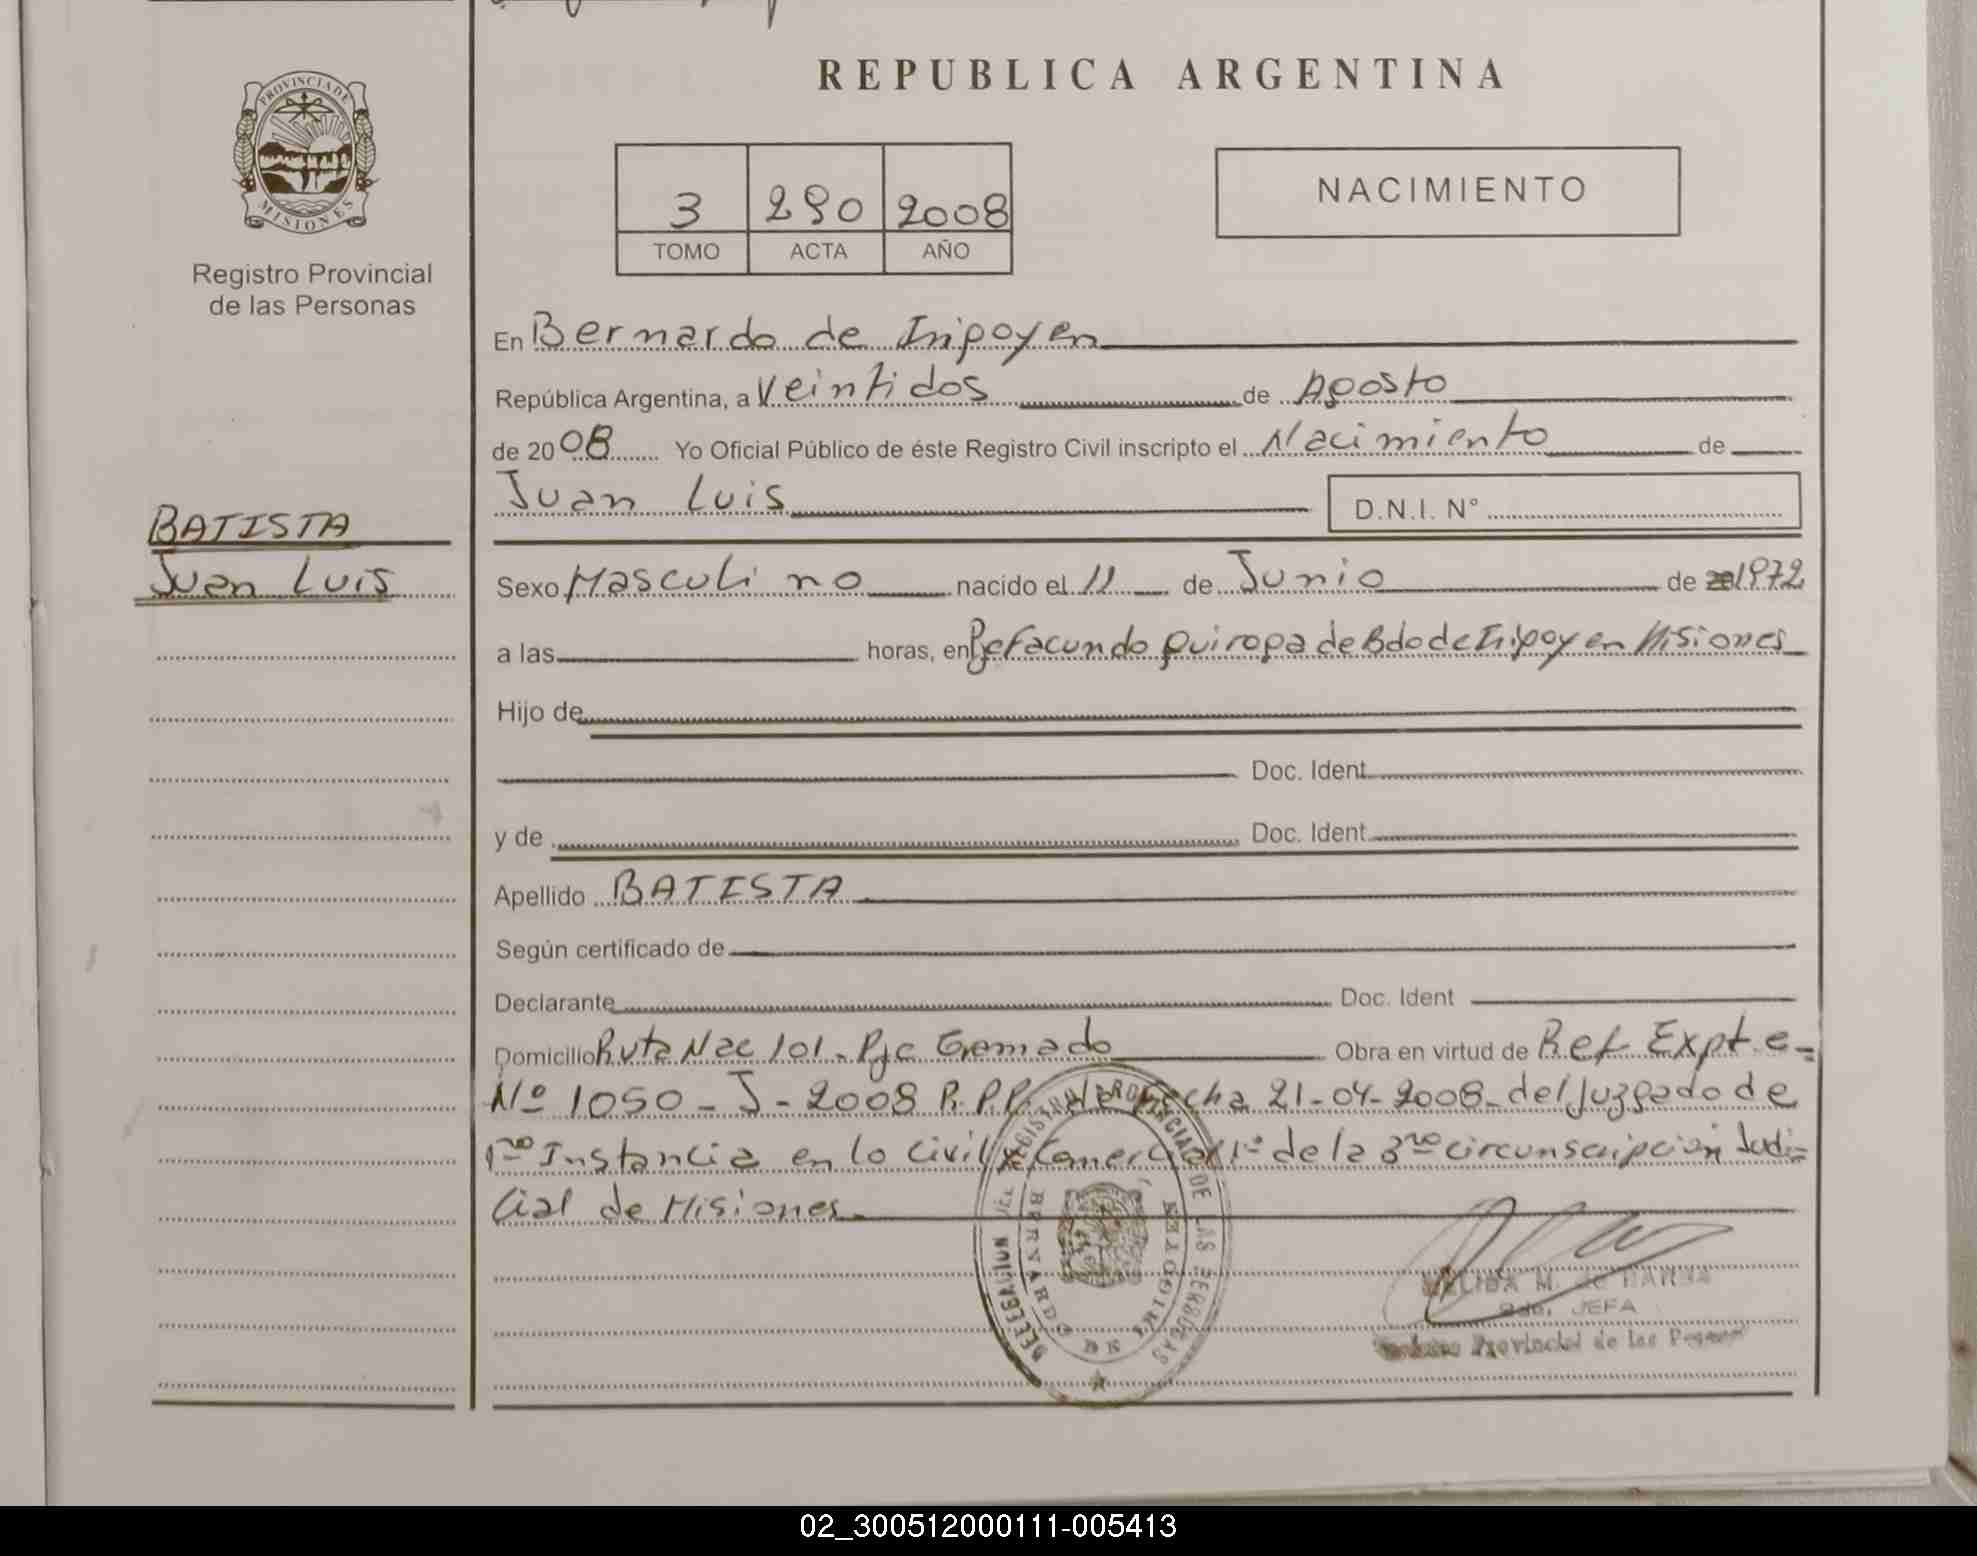 REPUBLICA ARGENTINA
PROVINCIA DE
MISIONES
Registro Provincial
de las Personas
3 290 2008
TOMO ACTA AÑO
NACIMIENTO
En Bernardo de Iripoyen
República Argentina, a Veintidos de Agosto
de 2008 Yo Oficial Público de éste Registro Civil inscripto el Nacimiento de
Juan Luis D.N.I. N°
BATISTA
Juan Luis
Sexo Masculino nacido el 11 de Junio de 1972
a las horas, en Pje Facundo Quiroga de Bdo de Iripoyen Misiones
Hijo de
Doc. Ident.
y de Doc. Ident.
Apellido BATISTA
Según certificado de
Declarante Doc. Ident
Domicilio Ruta Nac 101 - Pje Gramado Obra en virtud de Ref Expte=
Nº 1050 - J - 2008 R.P.P. de fecha 21-04-2008 - del Juzgado de
1ro Instancia en lo Civil y Comercial 1º de la 3ro circunscripción Judi=
cial de Misiones
DELEGACION DEL REGISTRO PROVINCIAL DE LAS PERSONAS
BERNARDO DE IRIGOYEN
M. de
JEFA
Provincial de las
02_300512000111-005413